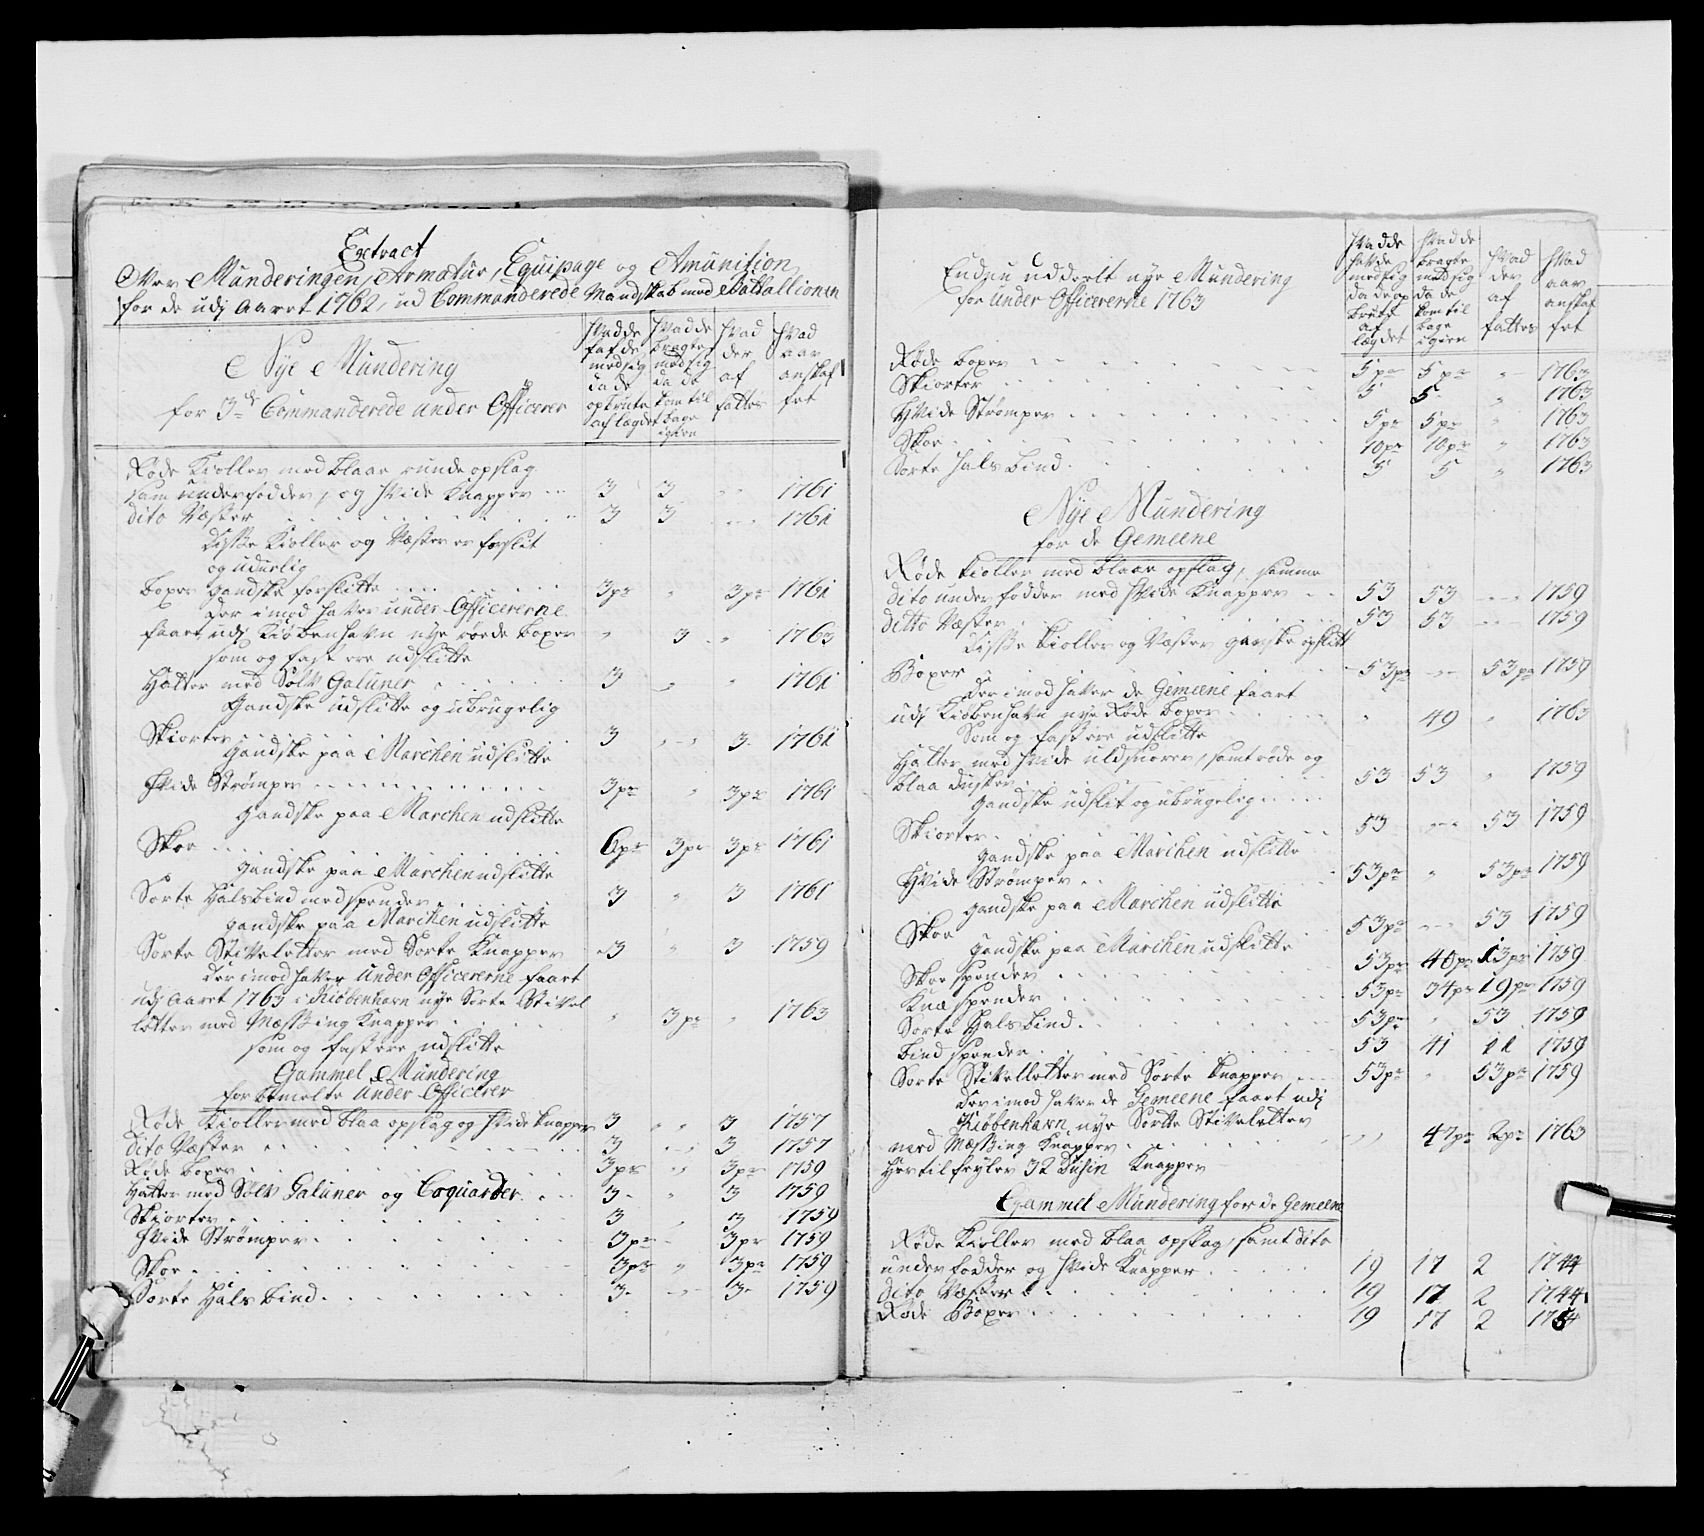 Extract
Over Munderingen, Armatur, Equipage og Amunition
for de udj Aaret 1762, ud Commanderede Mandskab med Battallionen
Nye Mundering
for 3de Commanderede Under Officerer
Hvad de
hafde
med sig
da de
opbrute
af lægdet
Hvad de
bragte
med sig
da de
kom til
bage
igien
Hvad
der
af
fattes
Hvad
aar
anskaf
fet
Røde Kioller med blaae runde opslag
sam underfodder, og Hvide Knapper 3 3 " 1761
dito Væster 3 3 " 1761
Disse Kioller og Væster er forslit
og udurlig
Boxer gandske forslitte 3pr " 3pr 1761
Der imod haver under Officererne
faaet udj Kiøbenhavn nye røede Boxer " 3 " 1763
som og fast ere udslitte
Hatter med Sølv Galuner 3 " " 1761
Gandske udslitte og ubrugelig
Skiorter 3 " 3 1761
Gandske paa Marchen udslitte
Hvide Strømper 3pr " 3pr 1761
gandske paa Marchen udslitte
Skoe 6pr 3pr 3pr 1761
gandske paa Marchen udslitte
Sorte Halsbind med spender 3 " 3 1761
gandske paa Marchen udslitte
Sorte Stivletter med Sorte Knapper 3 " 3 1759
Der imod haver Under Officererne faaet
udj Aaret 1763 i Kiøbenhavn nye Sorte Stivel
letter med Mæssing Knapper " 3pr " 1763
som og fast ere udslitte
Gammel Mundering
for bemelte Under Officerer
Røde Kioller med blaa opslag og Hvide Knapper 3 " 3 1757
dito Væster 3 " 3 1757
Røde Boxer 3pr " 3pr 1759
Hatter med Sølv Galuner og Coquarder 3 " 3 1759
Skiorter 3 " 3 1759
Hvide Strømper 3pr " 3pr 1759
Skoe 3pr " 3pr 1759
Sorte Hals Bind 3 " 3 1759
Endnu uddeelt nye Mundering
for Under Officererne 1763
Hvad de
havde
med sig
da de op
brute
af
lægdet
Hvad de
bragte
med sig
da de
kom til
bage
igien
Hvad
der
af
fattes
Hvad
aar
anskaf
fet
Røde Boxer 5pr 5pr " 1763
Skiorter 5 5 " 1763
Hvide Strømper 5pr 5pr " 1763
Skoe 10pr 10pr " 1763
Sorte Hals bind 5 5 " 1763
Nye Mundering
for de Gemeene
Røde Kioller med blaae opslag, samme
dito underfodder med Hvide Knapper 53 53 " 1759
ditto Væster 53 53 " 1759
Disse Kioller og Væster ganske opslitt
Boxer 53pr " 53pr 1759
Der imod haver de Gemeene faaet
udj Kiøbenhavn nye Røde Boxer " 49 " 1763
Som og fast ere udslitte
Hatter med Hvide uldsnorer, samt røde og
blaa dusker 53 53 " 1759
Gandske udslit og ubrugelig
Skiorter 53 " 53 1759
gandske paa Marchen udslitte
Hvide Strømper 53pr " 53pr 1759
gandske paa Marchen udslitte
Skoe 53pr " 53 1759
gandske paa Marchen udslitte
Skoe spender 53pr 40pr 13pr 1759
Knæ spender 53pr 34pr 19pr 1759
Sorte Hals bind 53pr " 53 1759
bind spender 53 41 11 1759
Sorte Stivelletter med Sorte Knapper 53pr " 53pr 1759
Der imod haver de Gemeene faaet udj
Kiøbenhavn nye Sorte Stiveletter
med Mæssing Knapper " 47pr 2pr 1763
Hertil feyler 32 Dusin Knapper
Gammel Mundering for de Gemeene
Røde Kioller med blaa opslag, samt dito
underfodder og Hvide Knapper 19 17 2 1744
dito Væster 19 17 2 1744
Røde Boxer 19 17 2